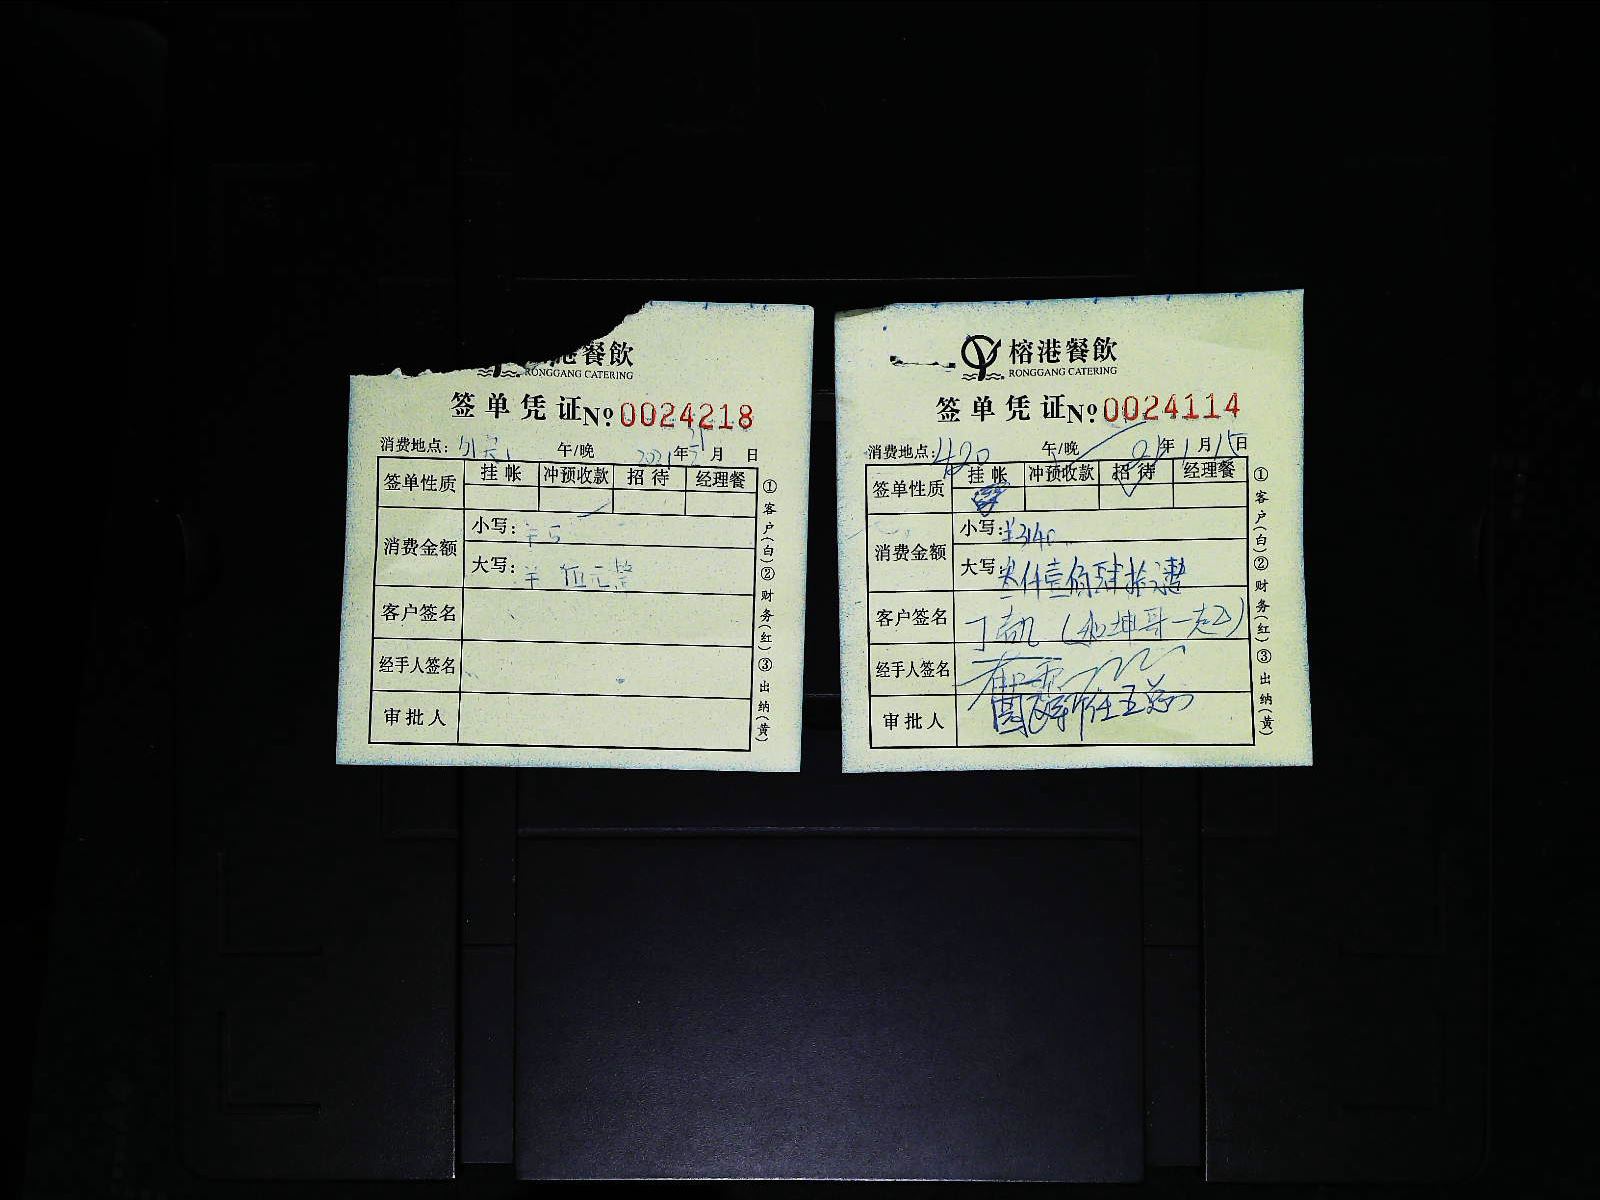 港餐飲
RONGGANG CATERING
签单凭证 No 0024218
消费地点: 午/晚 2021年 月 日
签单性质 挂帐 冲预收款 招待 经理餐
消费金额
小写: ¥5
大写: ¥ 伍元整
客户签名
经手人签名
审批人
①客户(白)②财务(红)③出纳(黄)
榕港餐飲
RONGGANG CATERING
签单凭证 No 0024114
消费地点: 午/晚 21年1月15日
签单性质 挂帐 冲预收款 招待 经理餐
消费金额
小写: ¥3140
大写: 叁仟壹佰肆拾元整
客户签名 丁凯(和坤哥一起)
经手人签名
审批人
①客户(白)②财务(红)③出纳(黄)